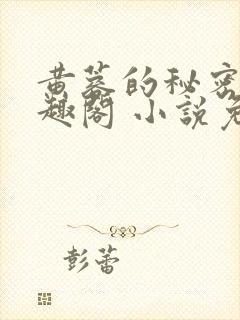 黄蓉的秘密
趣閣 小說免
彭蕾